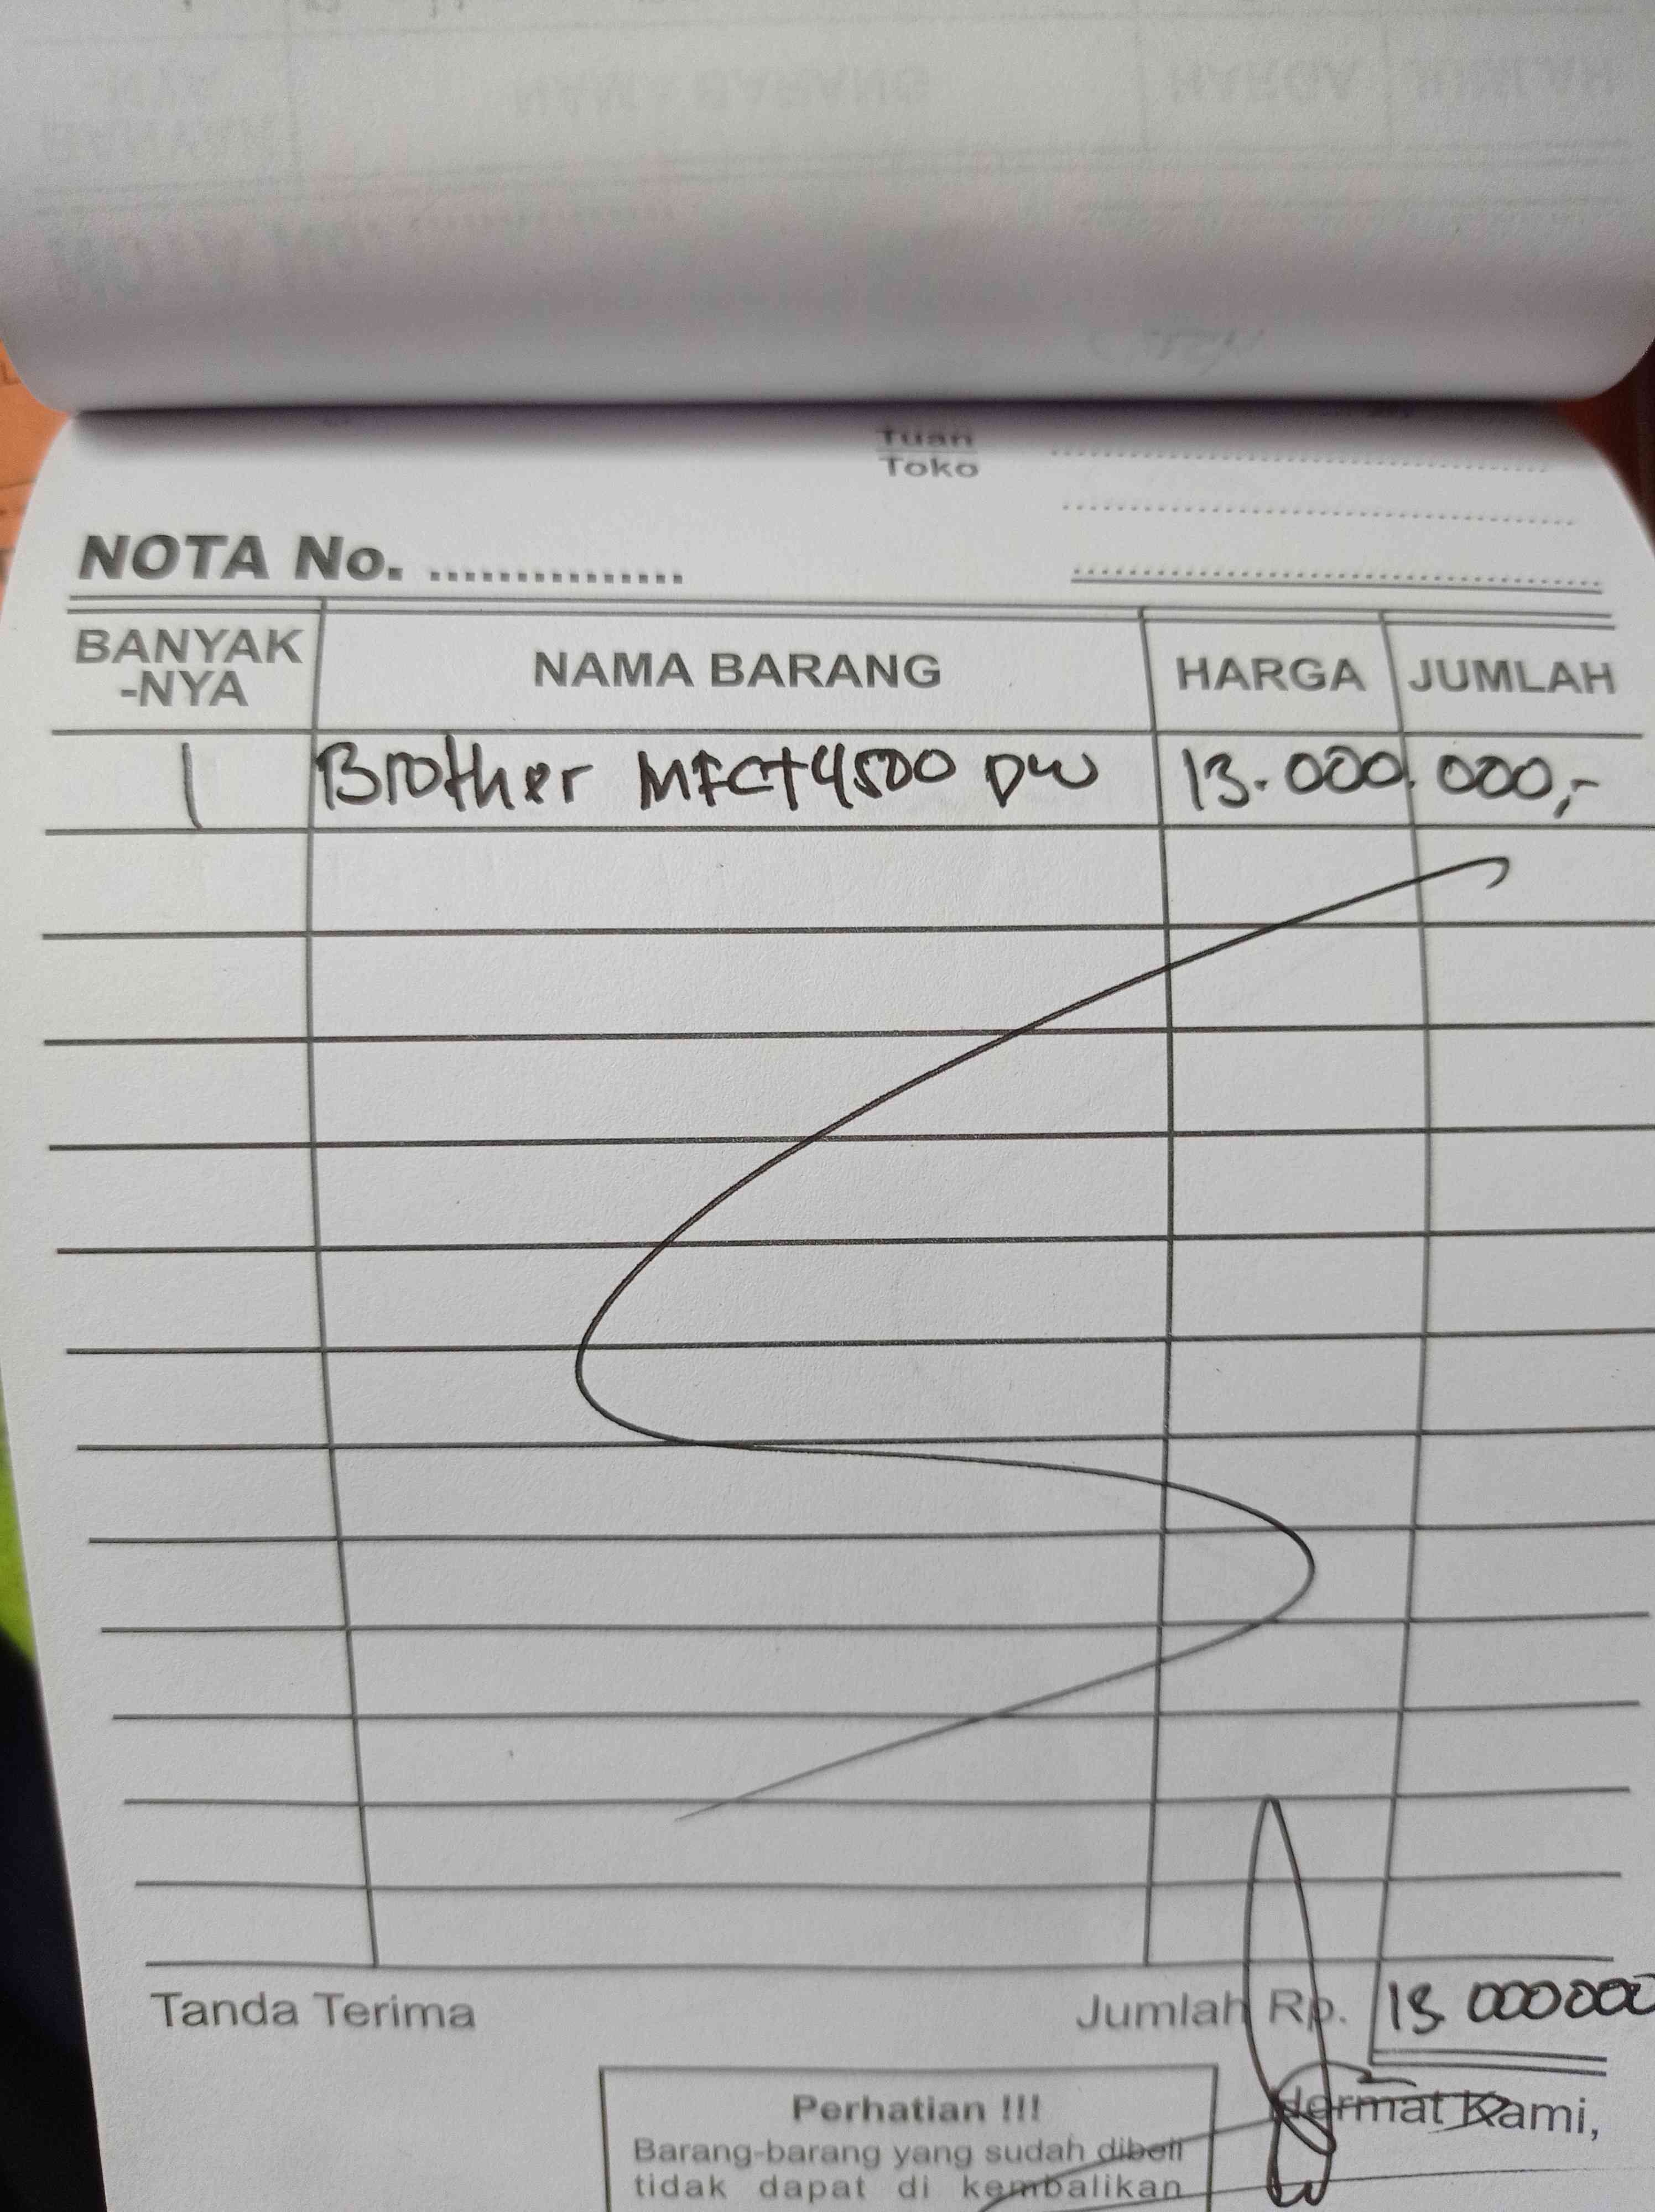 Tuan
Toko
NOTA No. ...............
BANYAK -NYA NAMA BARANG HARGA JUMLAH
1 Brother MFCT4500 DW 13.000.000,-
Tanda Terima Jumlah Rp. 13 000000
Perhatian !!! Hormat Kami,
Barang-barang yang sudah dibeli
tidak dapat di kembalikan